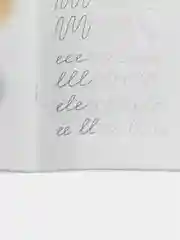 eee
lll
ele
ee ll